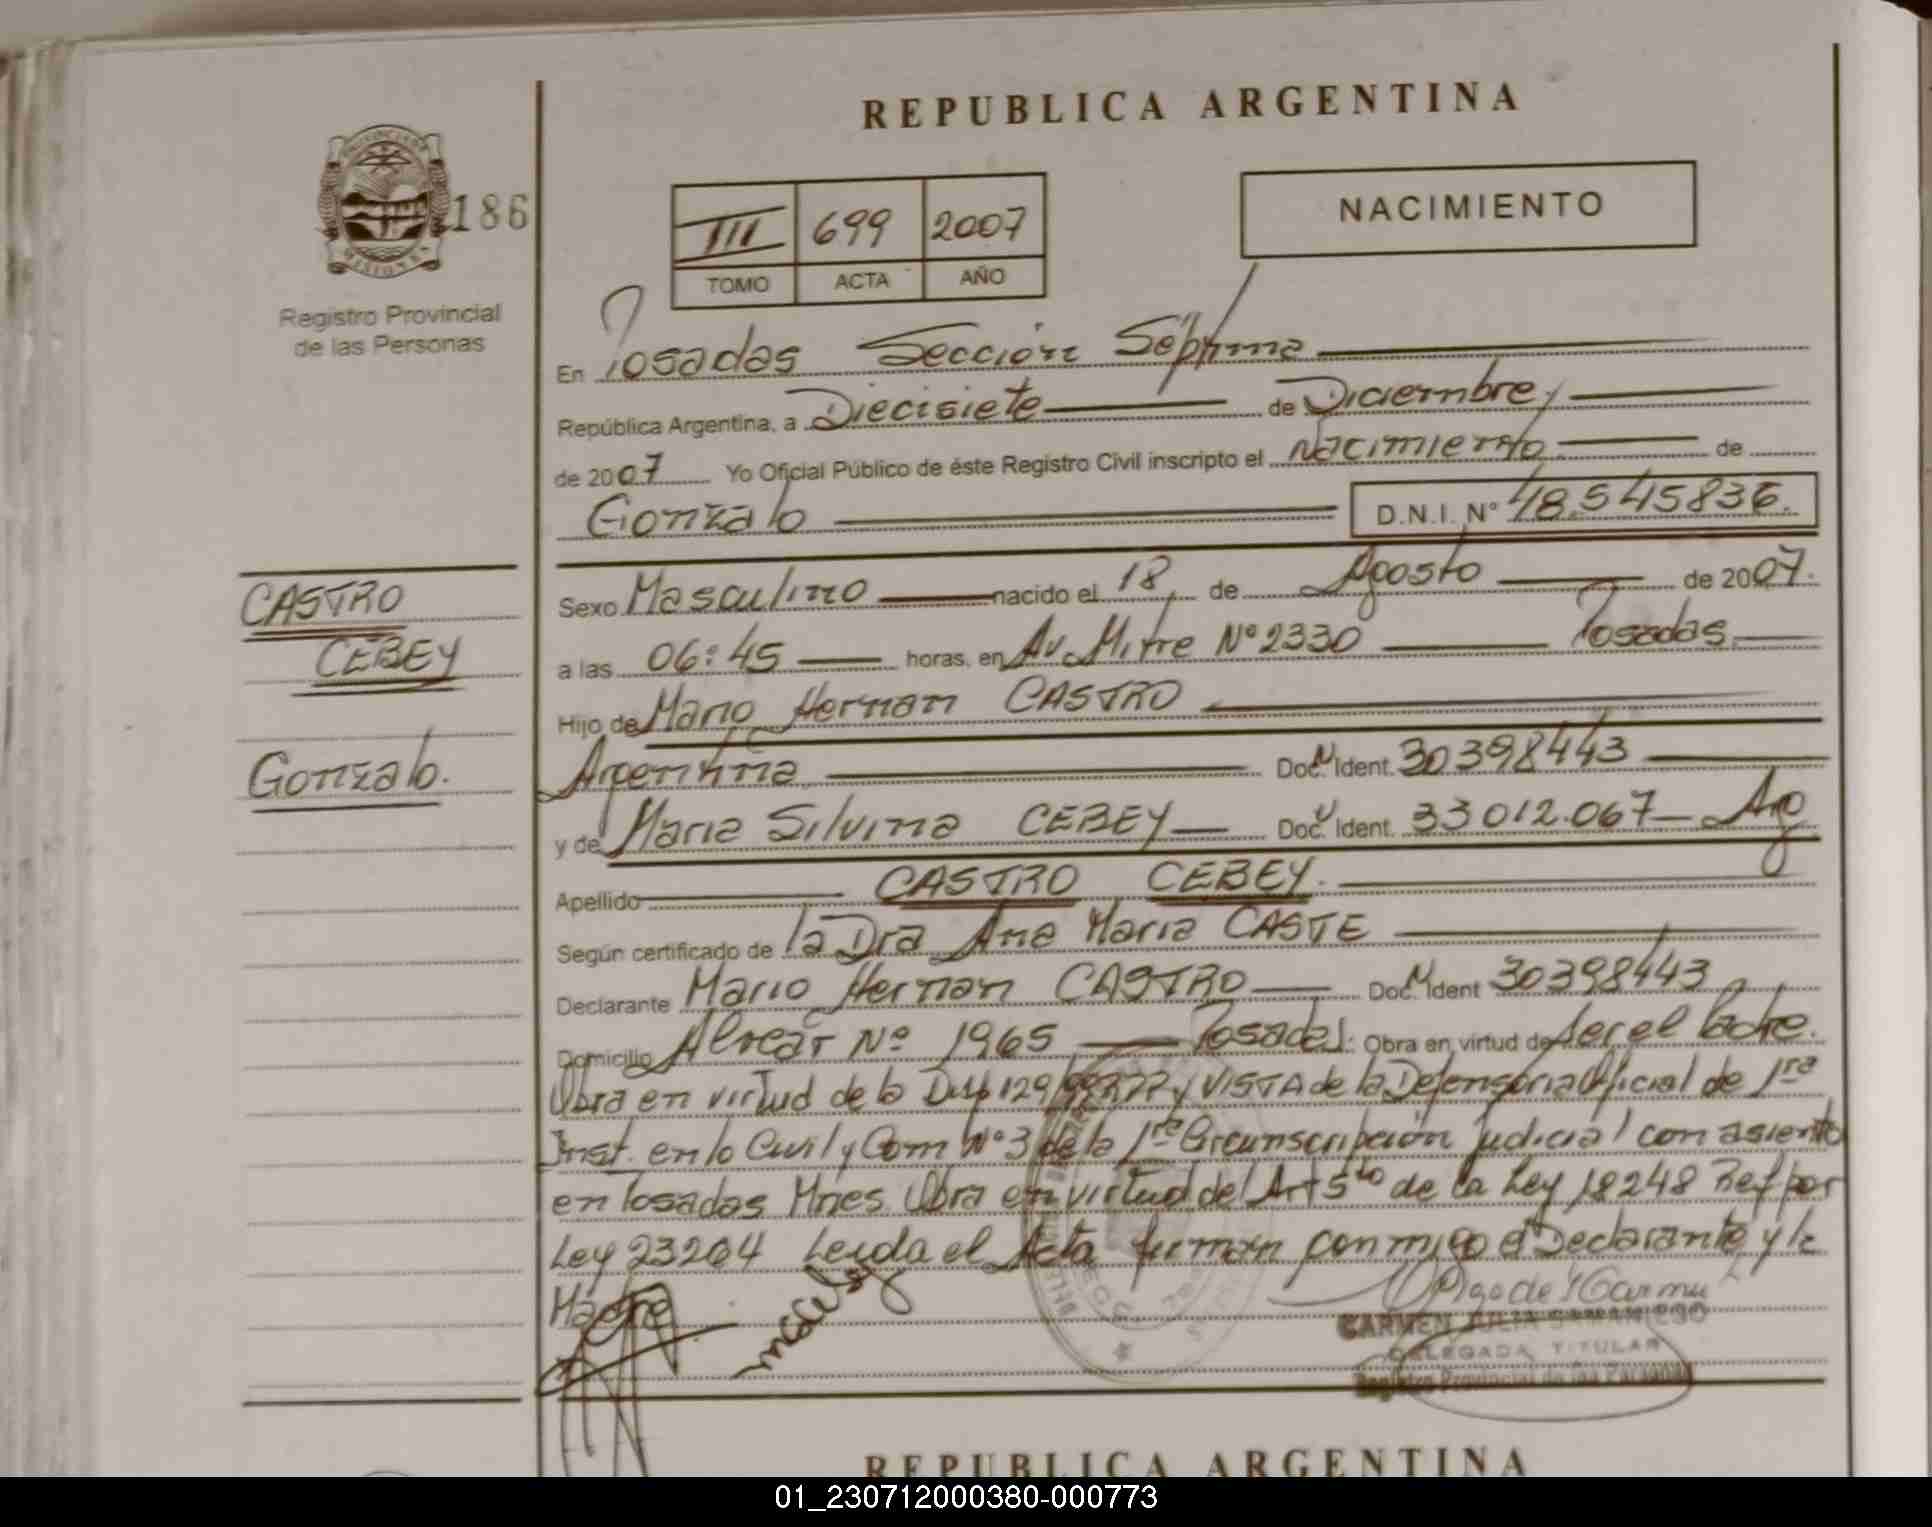 REPUBLICA ARGENTINA
PROVINCIA DE MISIONES
186
Registro Provincial
de las Personas
III 699 2007
TOMO ACTA AÑO
NACIMIENTO
En Posadas Sección Séptima
República Argentina, a Diecisiete de Diciembre
de 2007 Yo Oficial Público de éste Registro Civil inscripto el Nacimiento de
Gonzalo D.N.I. N° 48.545836.
CASTRO
CEBEY
Gonzalo.
Sexo Masculino nacido el 18 de Agosto de 2007.
a las 06:45 horas, en Av. Mitre N° 2330 Posadas.
Hijo de Mario Hernan CASTRO
Argentina Doc. Ident. 30398443
y de Maria Silvina CEBEY Doc. Ident. 33012.067 Arg
Apellido CASTRO CEBEY.
Según certificado de la Dra Ana Maria CASTE
Declarante Mario Hernan CASTRO Doc. Ident 30398443
Domicilio Alvear Nº 1965 Posadas. Obra en virtud de ser el Padre.
Obra en virtud de la Disp 129/99 y VISTA de la Defensoria Oficial de 1ra
Inst. en lo Civil y Com N° 3 de la 1ra Circunscripción judicial con asiento
en Posadas Mnes. Obra en virtud del Art 5to de la Ley 18248 Ref por
Ley 23264 Leida el Acta firman conmigo el Declarante y la
Madre
CARMEN JULIA SAMANIEGO
DELEGADA TITULAR
Registro Provincial de las Personas
REPUBLICA ARGENTINA
01_230712000380-000773